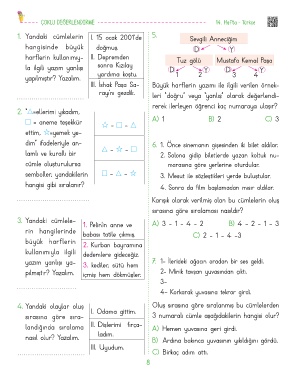 ÇOKLU DEĞERLENDİRME
14. Hafta - Türkçe
1. Yandaki cümlelerin
hangisinde büyük
harflerin kullanımıy-
la ilgili yazım yanlışı
yapılmıştır? Yazalım.
I. 15 ocak 2001'de
doğmuş.
II. Depremden
sonra Kızılay
yardıma koştu.
III. İshak Paşa Sa-
rayını gezdik.
2. "☆=ellerimi yıkadım,
□ = anneme teşekkür
ettim, ☆=yemek ye-
dim" ifadeleriyle an-
lamlı ve kurallı bir
cümle oluşturulursa
semboller, yandakilerin
hangisi gibi sıralanır?
3. Yandaki cümlele-
rin hangilerinde
büyük harflerin
kullanımıyla ilgili
yazım yanlışı ya-
pılmıştır? Yazalım.
1. Pelinin anne ve
babası tatile çıkmış.
2. Kurban bayramına
dedemlere gideceğiz.
3. kediler, sütü hem
içmiş hem dökmüşler.
4. Yandaki olaylar oluş
sırasına göre sıra-
landığında sıralama
nasıl olur? Yazalım.
I. Odama gittim.
II. Dişlerimi fırça-
ladım.
III. Uyudum.
5.
Sevgili Anneciğim
D Y
Tuz gölü
Mustafa Kemal Paşa
D Y D Y
1 2 3 4
Büyük harflerin yazımı ile ilgili verilen örnek-
leri "doğru" veya "yanlış" olarak değerlendi-
rerek ilerleyen öğrenci kaç numaraya ulaşır?
A) 1 B) 2 C) 3
6. 1. Önce sinemanın gişesinden iki bilet aldılar.
2. Salona gidip biletlerde yazan koltuk nu-
marasına göre yerlerine oturdular.
3. Mesut ile sözleştikleri yerde buluştular.
4. Sonra da film başlamadan mısır aldılar.
Karışık olarak verilmiş olan bu cümlelerin oluş
sırasına göre sıralaması nasıldır?
A) 3 - 1 - 4 - 2 B) 4 - 2 - 1 - 3
C) 2 - 1 - 4 -3
7. 1- İlerideki ağacın oradan bir ses geldi.
2- Minik tavşan yuvasından çıktı.
3-
4- Korkarak yuvasına tekrar girdi.
Oluş sırasına göre sıralanmış bu cümlelerden
3 numaralı cümle aşağıdakilerin hangisi olur?
A) Hemen yuvasına geri girdi.
B) Ardına bakınca yuvasının yıkıldığını gördü.
C) Birkaç adım attı.
8